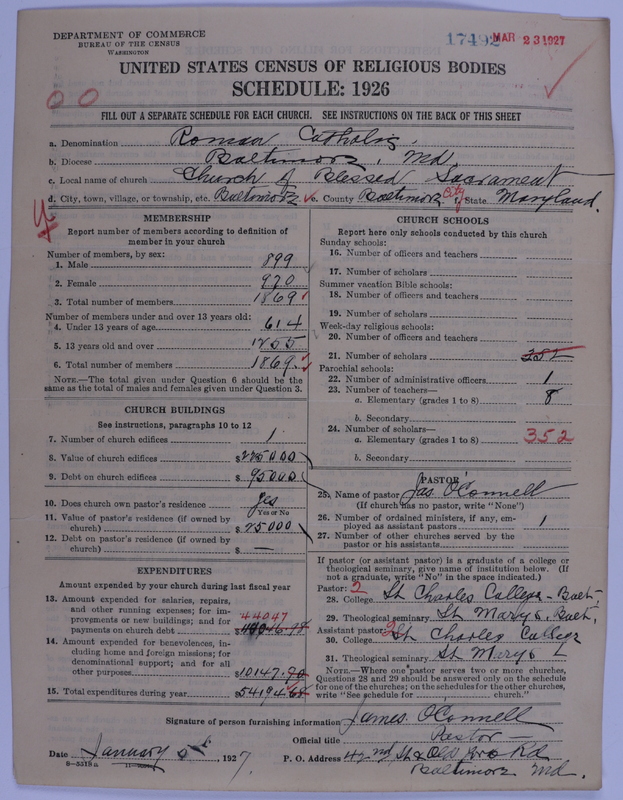 DEPARTMENT OF COMMERCE
BUREAU OF THE CENSUS
WASHINGTON
17492 MAR 23 1927
UNITED STATES CENSUS OF RELIGIOUS BODIES
SCHEDULE: 1926
00
FILL OUT A SEPARATE SCHEDULE FOR EACH CHURCH. SEE INSTRUCTIONS ON THE BACK OF THIS SHEET
a. Denomination Roman Catholic
b. Diocese Baltimore, Md.
c. Local name of church Church of Blessed Sacrament
d. City, town, village, or township, etc. Baltimore e. County Baltimore City f. State Maryland.
MEMBERSHIP
Report number of members according to definition of
member in your church
Number of members, by sex:
1. Male 899
2. Female 970
3. Total number of members 1869
Number of members under and over 13 years old:
4. Under 13 years of age 614
5. 13 years old and over 1255
6. Total number of members 1869
NOTE.—The total given under Question 6 should be the
same as the total of males and females given under Question 3.
CHURCH BUILDINGS
See instructions, paragraphs 10 to 12
7. Number of church edifices 1
8. Value of church edifices $225000
9. Debt on church edifices $95000
10. Does church own pastor's residence yes
Yes or No
11. Value of pastor's residence (if owned by
church) $25000
12. Debt on pastor's residence (if owned by
church) $ —
EXPENDITURES
Amount expended by your church during last fiscal year
13. Amount expended for salaries, repairs,
and other running expenses; for im-
provements or new buildings; and for
44047
payments on church debt $
14. Amount expended for benevolences, in-
cluding home and foreign missions; for
denominational support; and for all
other purposes $10147.90
15. Total expenditures during year $54194
CHURCH SCHOOLS
Report here only schools conducted by this church
Sunday schools:
16. Number of officers and teachers
17. Number of scholars
Summer vacation Bible schools:
18. Number of officers and teachers
19. Number of scholars
Week-day religious schools:
20. Number of officers and teachers
21. Number of scholars 352
Parochial schools:
22. Number of administrative officers 1
23. Number of teachers—
a. Elementary (grades 1 to 8) 8
b. Secondary
24. Number of scholars—
a. Elementary (grades 1 to 8) 352
b. Secondary
PASTOR
25. Name of pastor Jas. O'Connell
(If church has no pastor, write "None")
26. Number of ordained ministers, if any, em-
ployed as assistant pastors 1
27. Number of other churches served by the
pastor or his assistants
If pastor (or assistant pastor) is a graduate of a college or
theological seminary, give name of institution below. (If
not a graduate, write "No" in the space indicated.)
Pastor: 2
28. College St Charles College - Balt-
29. Theological seminary St Marys. Balt.
Assistant pastor: 2
30. College St Charles College
31. Theological seminary St Marys
NOTE.—Where one pastor serves two or more churches,
Questions 28 and 29 should be answered only on the schedule
for one of the churches; on the schedules for the other churches,
write "See schedule for church."
Signature of person furnishing information James O'Connell
Official title Pastor —
Date January 1927. P. O. Address 42nd St & Old York Rd
8—5318a Baltimore Md.